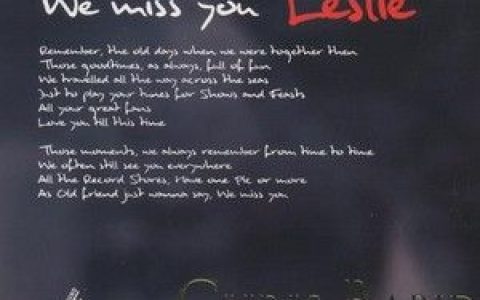 We miss you Leslie
Remember, the old days when we were together then
Those goodtimes, as always, full of fun
We travelled all the way across the seas
Just to play your tunes for Shows and Feasts
All your great fans
Love you till this time
Those moments, we always remember from time to time
We often still see you everywhere
All the Record Stores, Have one Pic or more
As Old friend just wanna say, We miss you